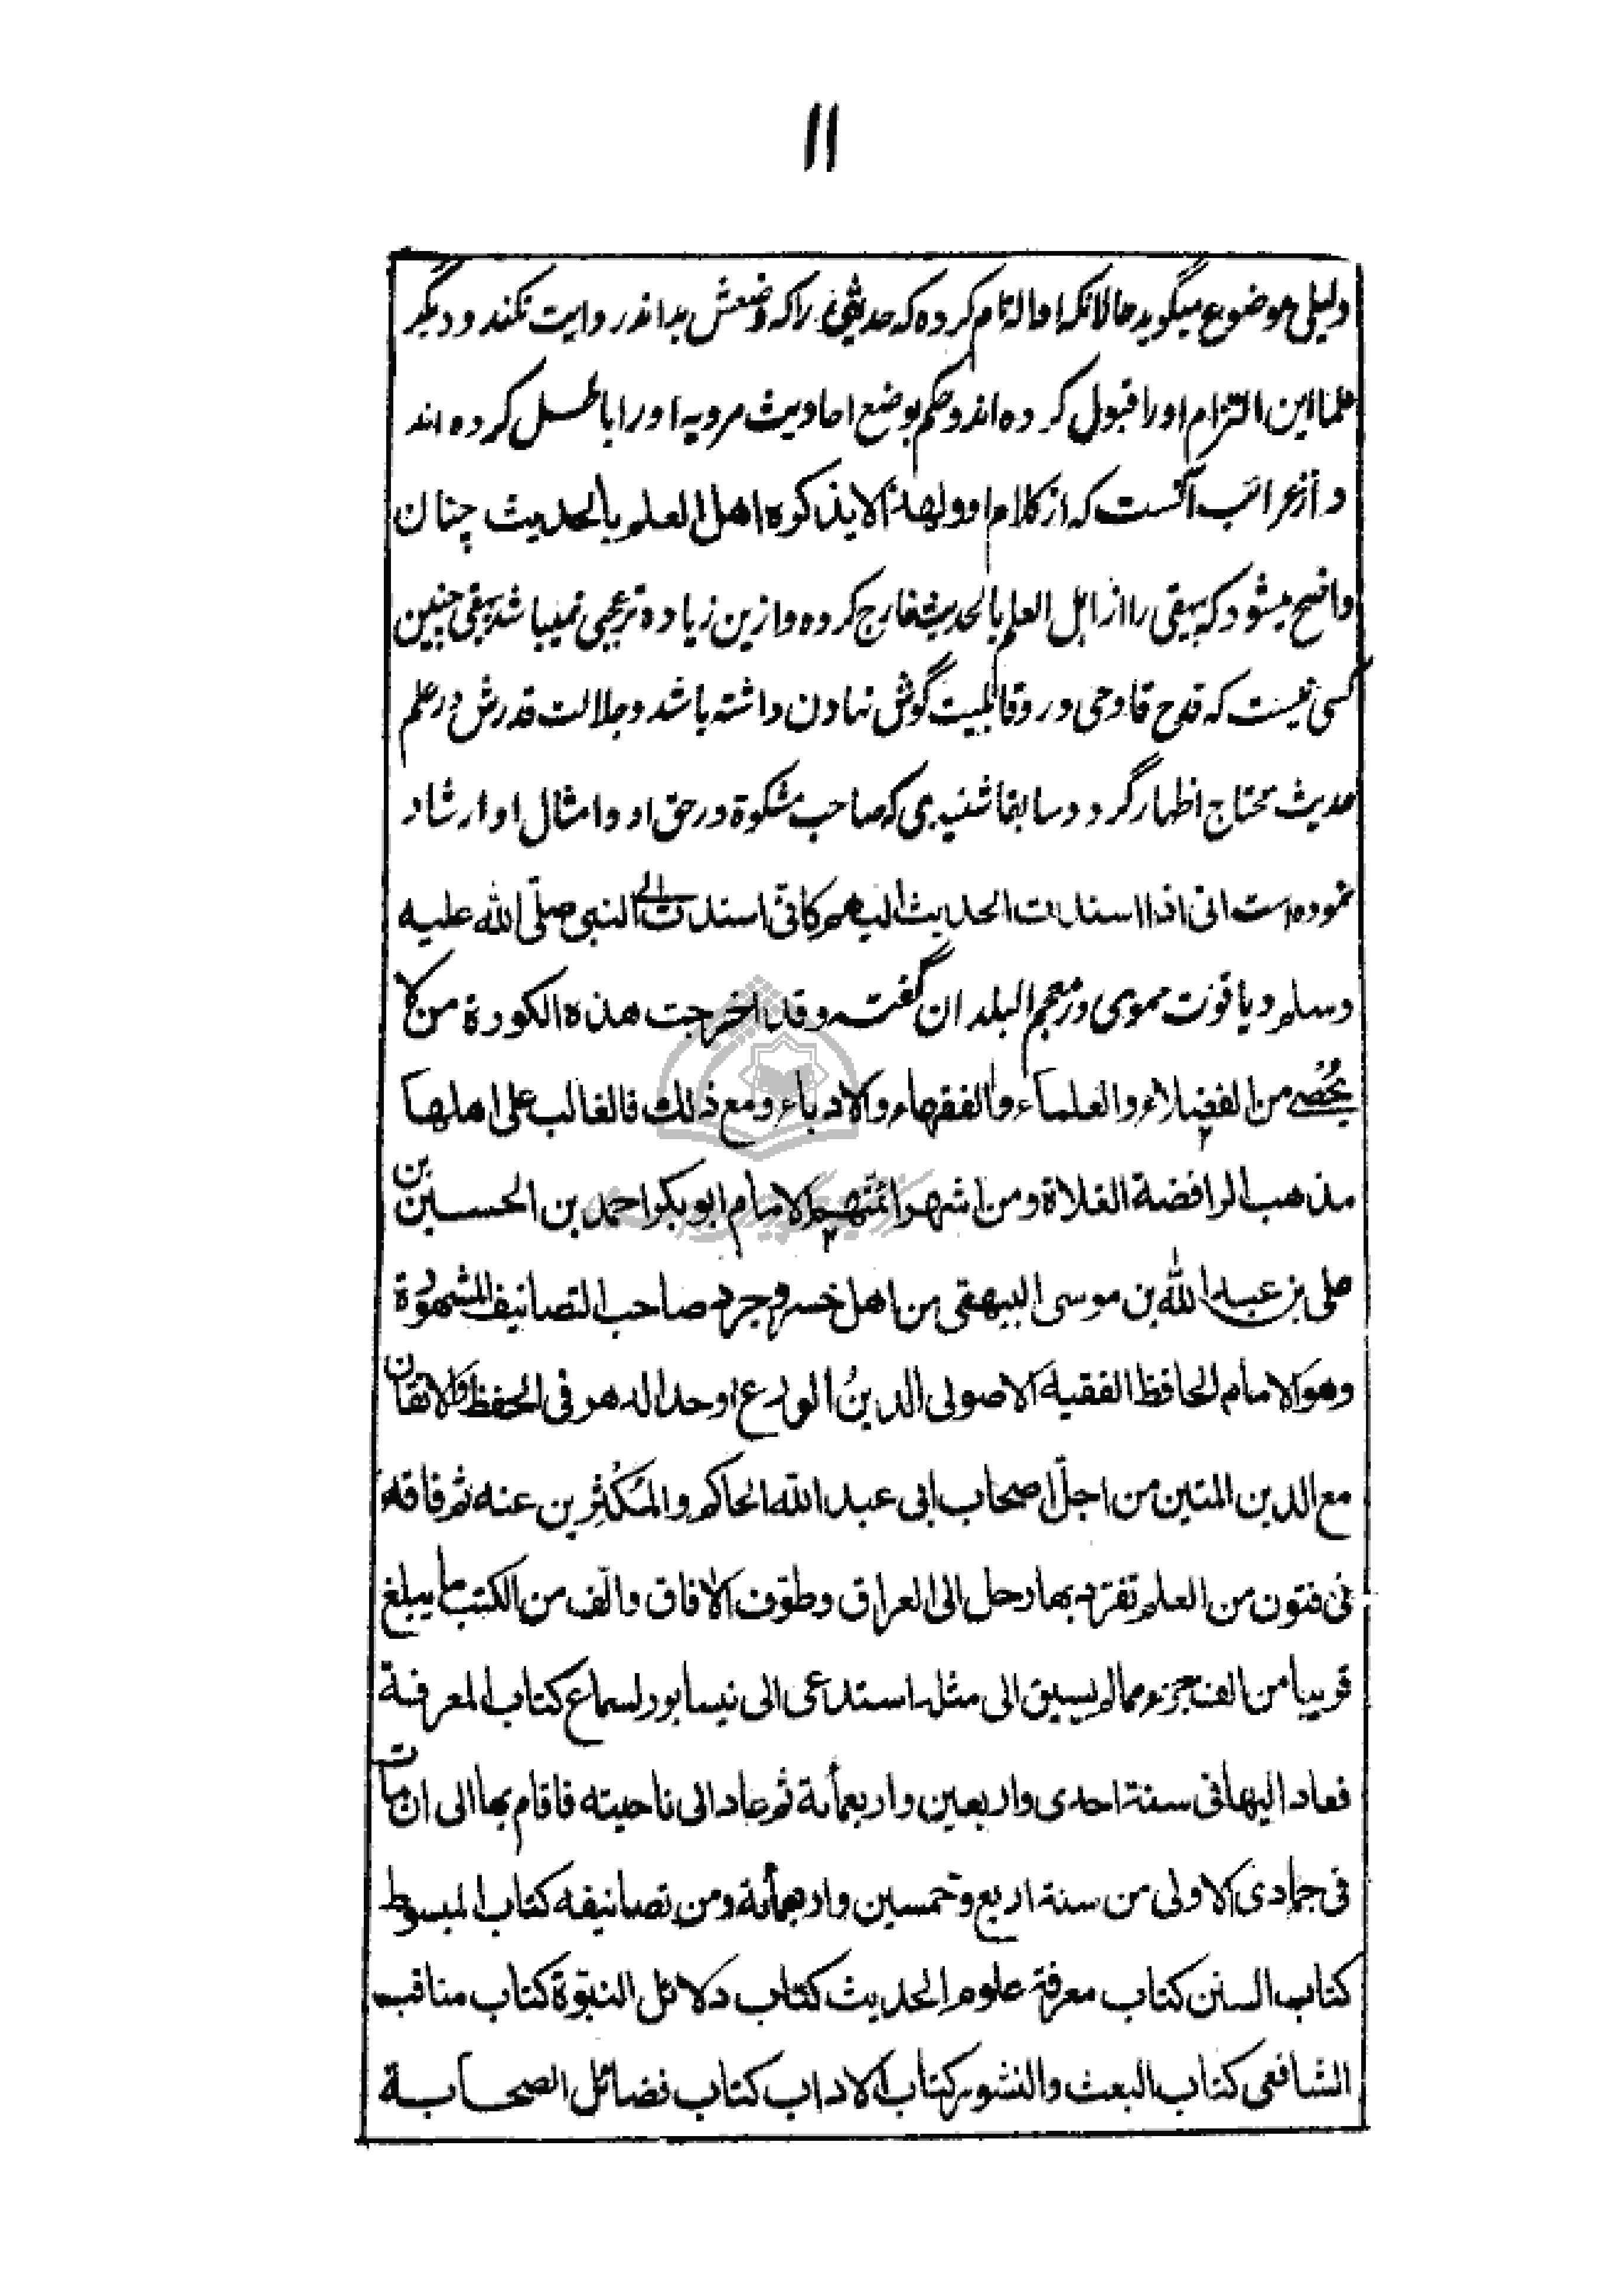 ۱۱
دلیلی موضوع میگوید حالانکه او التزام کرده که حدیثی را که وضعش بداند روایت نکند و دیگر
علما این التزام او را قبول کرده اند و حکم بوضع احادیث مرویه او را باطل کرده اند
و از غرائب آنست که از کلام او ولهذا لا یذکره اهل العلم بالحدیث چنان
واضح میشود که بیهقی را از اهل العلم بالحدیث خارج کرده و ازین زیاده تر عجبی نمیباشد بیهقی چنین
کسی نیست که قدح قادحی درو قابلیت گوش نهادن داشته باشد و جلالت قدرش در علم
حدیث محتاج اظهار گردد و سابقا شنیدی که صاحب مشکوة در حق او و امثال او ارشاد
نموده است انی اذا اسندت الحدیث الیهم کانّی اسندت الی النبی صلّی الله علیه
وسلم و یاقوت حموی در معجم البلدان گفته وقد اخرجت هذه الکورة من لا
یُحْصی من الفضلاء والعلماء والفقهاء والادباء ومع ذلک فالغالب علی اهلها
مذهب الرافضة الغلاة ومن اشهر ائمّتهم الامام ابو بکر احمد بن الحسین بن
علی بن عبد الله بن موسی البیهقی من اهل خسروجرد صاحب التصانیف المشهورة
وهو الامام الحافظ الفقیه الاصولی الدینُ الورع اوحد الدهر فی الحفظ والاتقان
مع الدین المتین من اجلّ اصحاب ابی عبد الله الحاکم والمُکْثِرین عنه ثم فاقه
فی فنون من العلم تفرّد بها رحل الی العراق وطوّف الآفاق والّف من الکتب ما یبلغ
قریبا من الف جزء مما لم یسبق الی مثله استدعی الی نیسابور لسماع کتاب المعرفة
فعاد الیها فی سنة احدی واربعین واربعمأة ثم عاد الی ناحیته فاقام بها الی ان مات
فی جمادی الاولی من سنة اربع وخمسین واربعمأة ومن تصانیفه کتاب المبسوط
کتاب السنن کتاب معرفة علوم الحدیث کتاب دلائل النبوّة کتاب مناقب
الشافعی کتاب البعث والنشور کتاب الاداب کتاب فضائل الصحابة